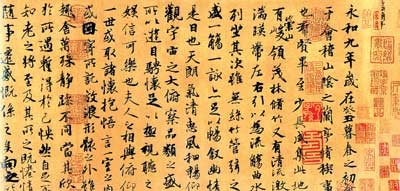 永和九年歲在癸丑暮春之初
于會稽山陰之蘭亭脩稧事
也群賢畢至少長咸集此地
有崇山峻領茂林脩竹又有清流激
湍暎帶左右引以為流觴曲水
列坐其次雖無絲竹管絃
盛一觴一詠亦足以暢叙幽情
是日也天朗氣清惠風和暢仰
觀宇宙之大俯察品類之盛
所以遊目騁懷足以極視聽之
娛信可樂也夫人之相與俯仰
一世或取諸懷抱悟言一室之內
或因寄所託放浪形骸之外雖
趣舍萬殊靜躁不同當其欣
於所遇暫得於己快然自足不
知老之將至及其所之既惓情
隨事遷感慨係之矣向之